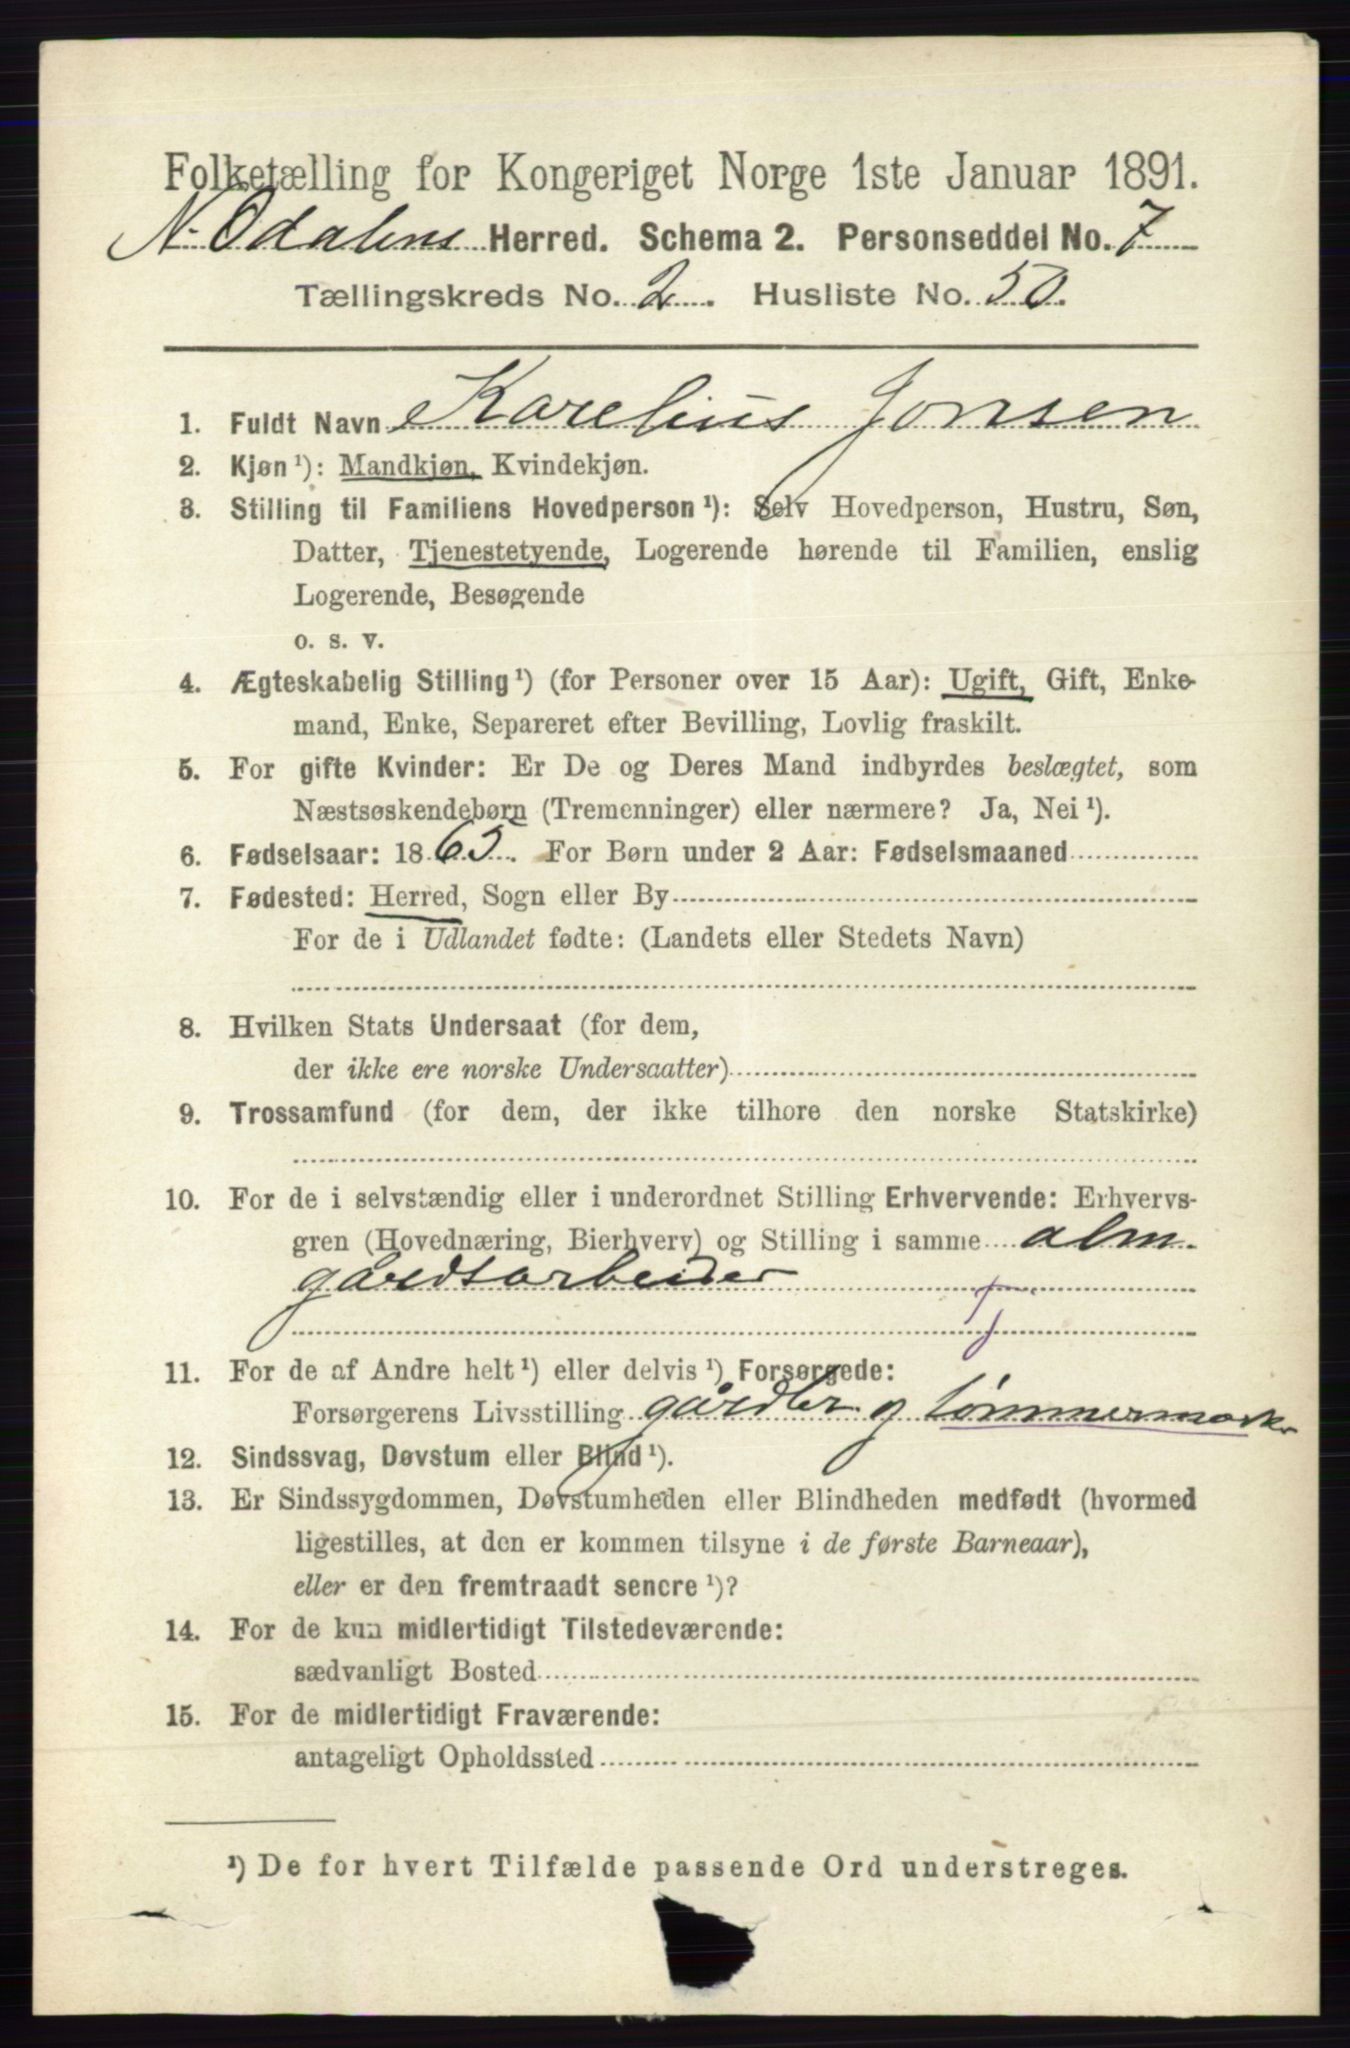 Folketælling for Kongeriget Norge 1ste Januar 1891.
N. Odalens Herred. Schema 2. Personseddel No. 7
Tællingskreds No. 2. Husliste No. 50.
1. Fuldt Navn Karelius Jonsen
2. Kjøn ¹): Mandkjøn, Kvindekjøn.
3. Stilling til Familiens Hovedperson ¹): Selv Hovedperson, Hustru, Søn,
Datter, Tjenestetyende, Logerende hørende til Familien, enslig
Logerende, Besøgende
o. s. v.
4. Ægteskabelig Stilling ¹) (for Personer over 15 Aar): Ugift, Gift, Enke-
mand, Enke, Separeret efter Bevilling, Lovlig fraskilt.
5. For gifte Kvinder: Er De og Deres Mand indbyrdes beslægtet, som
Næstsøskendebørn (Tremenninger) eller nærmere? Ja, Nei ¹).
6. Fødselsaar: 1865. For Børn under 2 Aar: Fødselsmaaned
7. Fødested: Herred, Sogn eller By
For de i Udlandet fødte: (Landets eller Stedets Navn)
8. Hvilken Stats Undersaat (for dem,
der ikke ere norske Undersaatter)
9. Trossamfund (for dem, der ikke tilhore den norske Statskirke)
10. For de i selvstændig eller i underordnet Stilling Erhvervende: Erhvervs-
gren (Hovednæring, Bierhverv) og Stilling i samme alm.
gårdsarbeider
T
11. For de af Andre helt ¹) eller delvis ¹) Forsørgede:
Forsørgerens Livsstilling gårdbr og tømmermærk.
12. Sindssvag, Døvstum eller Blind ¹).
13. Er Sindssygdommen, Døvstumheden eller Blindheden medfødt (hvormed
ligestilles, at den er kommen tilsyne i de første Barneaar),
eller er den fremtraadt senere ¹)?
14. For de kun midlertidigt Tilstedeværende:
sædvanligt Bosted
15. For de midlertidigt Fraværende:
antageligt Opholdssted
¹) De for hvert Tilfælde passende Ord understreges.